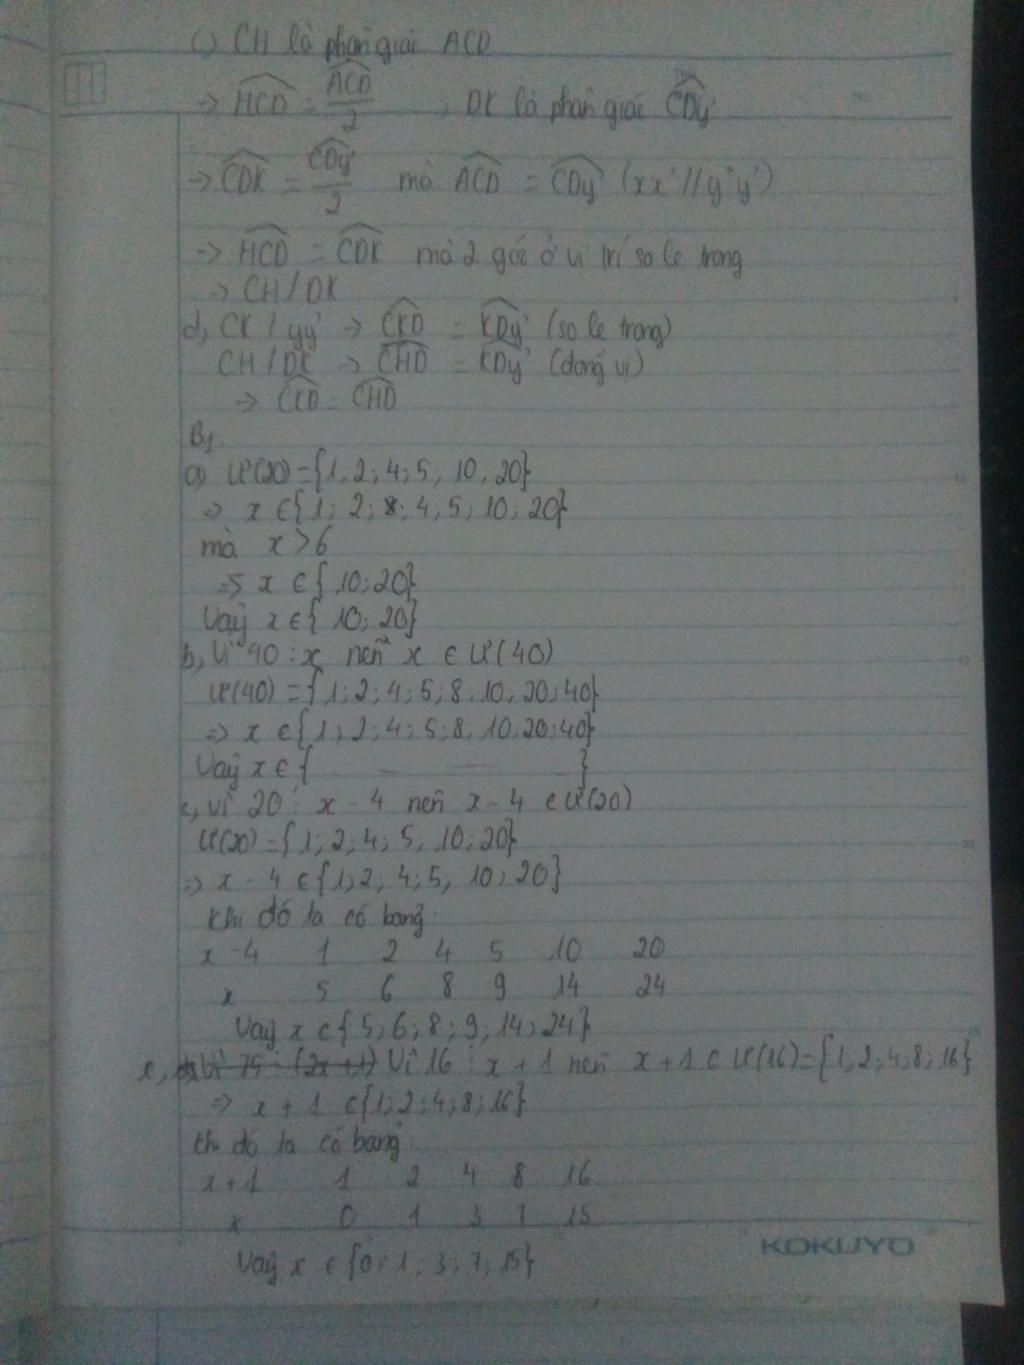 c) CH là phân giác ACD
→ HCD = ACD/2 → DK là phân giác CDy'
→ CDK = CDy'/2 mà ACD = CDy' (xx' // y'y')
→ HCD = CDK mà 2 góc ở vị trí so le trong
→ CH / DK
d, CK / yy' → CKD = KDy' (so le trong)
CH / DK → CHD = KDy' (đồng vị)
→ CKD = CHD
B1
a) Ư(20) = {1, 2; 4; 5, 10, 20}
→ x ∈ {1; 2; 8; 4, 5; 10; 20}
mà x > 6
=> x ∈ { 10; 20}
Vậy x ∈ { 10; 20}
b, Vì 40 ⋮ x nên x ∈ Ư(40)
Ư(40) = {1; 2; 4; 5; 8, 10, 20; 40}
=> x ∈ {1; 2; 4; 5; 8; 10, 20; 40}
Vậy x ∈ { }
c, Vì 20 ⋮ x - 4 nên x - 4 ∈ Ư(20)
Ư(20) = {1; 2; 4; 5, 10; 20}
=> x - 4 ∈ {1; 2; 4; 5, 10; 20}
Khi đó ta có bảng:
x - 4 1 2 4 5 10 20
x 5 6 8 9 14 24
Vậy x ∈ {5; 6; 8; 9; 14; 24}
Vì 75 ⋮ (2x+1) Vì 16 ⋮ x + 1 nên x + 1 ∈ Ư(16) = {1; 2; 4; 8; 16}
=> x + 1 ∈ {1; 2; 4; 8; 16}
Khi đó ta có bảng:
x + 1 1 2 4 8 16
x 0 1 3 7 15
Vậy x ∈ {0; 1; 3; 7; 15}
KOKUYO